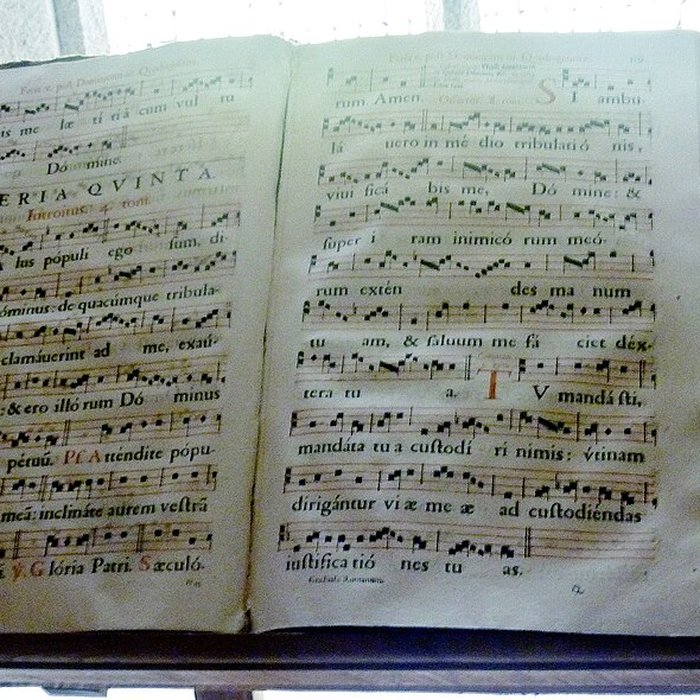 is me læ tí tiā cum vul tu
Dó mine.
ERIA QVINTA.
Introitus. 4. toni.
lus pópuli ego sum, di-
óminus: de quacúmque tribula-
clamáuerint ad me, exaú-
: & ero illó rum Dó minus
pétuū. Ps. Atténdite pópu-
meā: inclináte aurem vestrā
℣. Glória Patri. Sæculó-
Feria v. post Dominicam iij. Quadragesimæ 119
rum Amen. Offertor. 8. toni. SI ambu
lá uero in mé dio tribulatió nis,
viui ficá bis me, Dó mine: &
super i ram inimicó rum meó-
rum extén des ma num
tu am, & saluum me fá ciet déx-
tera tu a. TV mandá sti,
mandáta tu a custodí ri nimis: vtinam
dirigántur vi æ me æ ad custodiéndas
iustifica tió nes tu as.
Graduale Romanum.